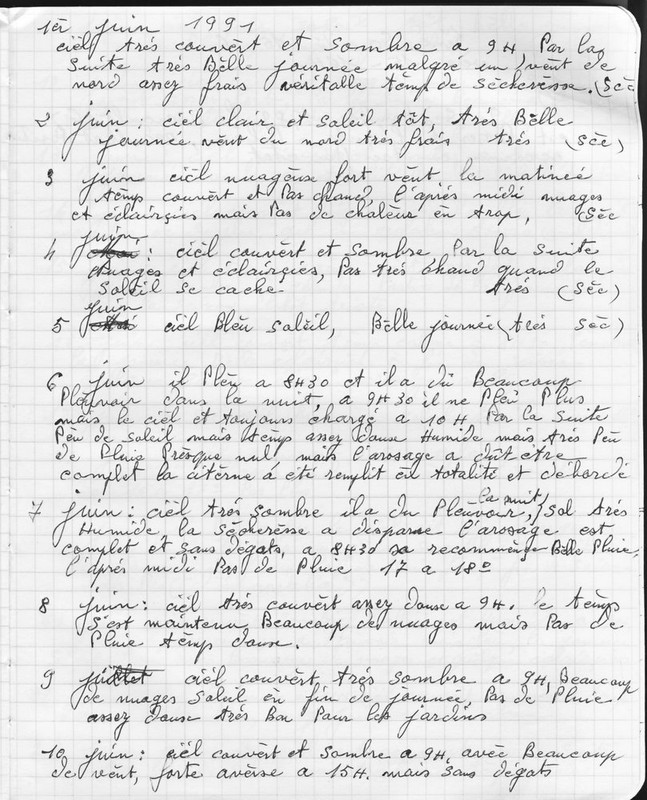 1er juin 1991
ciel trés couvèrt et sombre a 9H, Par la
Suite trés Bèlle journée malgré un vènt de
nord assez frais véritable tèmp de Sècherèsse. (Sèc
2 juin : cièl clair et Soleil tôt, trés Bèlle
journée vènt du nord trés frais trés (Sèc)
3 juin cièl nuageuse fort vènt la matineé
tèmp couvèrt et Pas chaud, l'aprés midi nuages
et éclairgies mais Pas de chaleur en trop, (Sèc
juin
4 : cièl couvèrt et Sombre, Par la Suite
nuages et éclairgies, Pas trés chaud quand le
Soleil Se cache trés (Sèc)
juin
5 cièl Bleu Soleil, Bèlle journée (trés Sèc)
6 juin il Pleu a 8H30 et il a du Beaucoup
Pleuvoir dans la nuit, a 9H30 il ne Pleu Plus
mais le cièl et toujours chargé a 10H Par la Suite
Peu de Soleil mais tèmp assez douse Humide mais trés Peu
de Pluie Presque nul mais l'arosage a dût être
complet la citèrne á été remplit en totalité et débordé
la nuit
7 juin : cièl trés Sombre il a du Pleuvoir, / Sol trés
Humide, la Sècherèsse a disparue l'arosage est
complet et Sans dégats, a 8H30 sa recommence Bèlle Pluie,
l'aprés midi Pas de Pluie 17 a 18º
8 juin : cièl trés couvèrt assez douse a 9H. le tèmp
S'est maintenu Beaucoup de nuages mais Pas de
Pluie tèmp douse.
9 juillet cièl couvèrt, trés Sombre a 9H, Beaucoup
de nuages Soleil en fin de journée, Pas de Pluie
assez douse trés Bon Pour les jardins
10 juin : cièl couvèrt et Sombre a 9H. avèc Beaucoup
de vènt, forte avèrse a 15H. mais Sans dégats